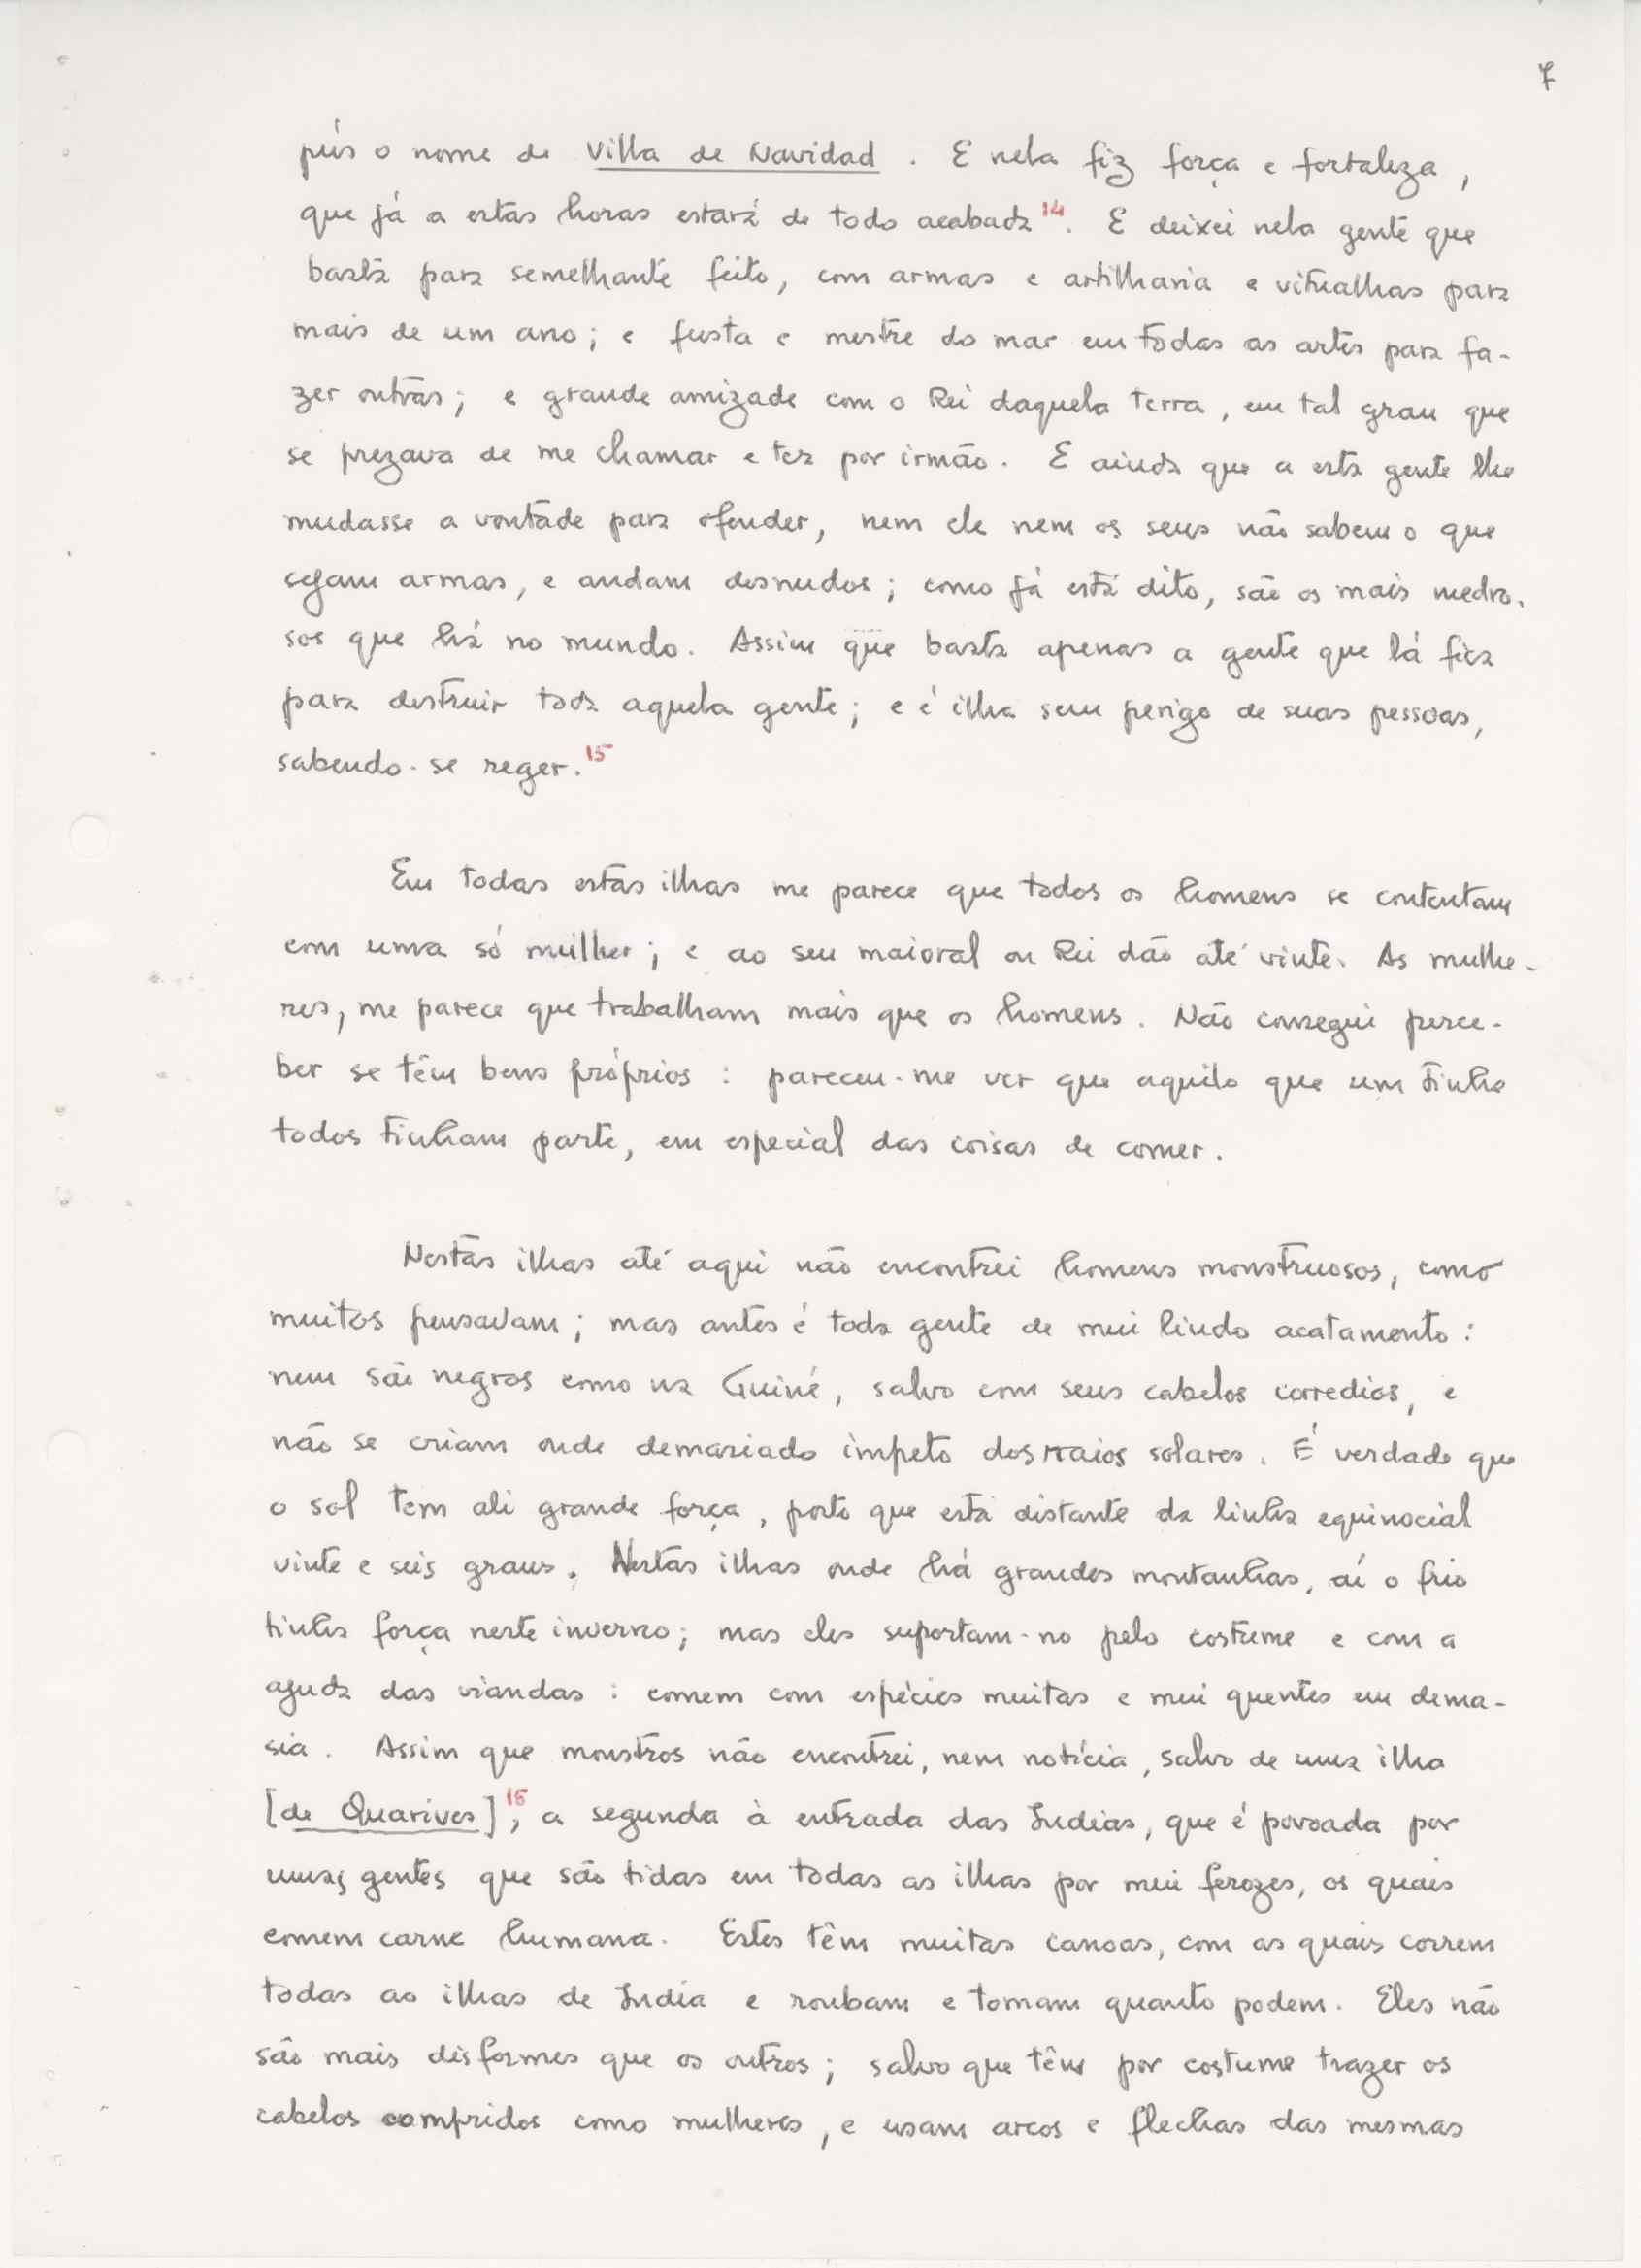 7
pús o nome de Villa de Navidad . E nela fiz força e fortaleza ,
que já a estas horas estará de todo acabada 14. E deixei nela gente que
basta para semelhante feito, com armas e artilharia e vitualhas para
mais de um ano; e fusta e mestre do mar em todas as artes para fa-
zer outras; e grande amizade com o Rei daquela terra, em tal grau que
se prezava de me chamar e ter por irmão. E ainda que a esta gente lhe
mudasse a vontade para ofender, nem ele nem os seus não sabem o que
sejam armas, e andam desnudos; como já está dito, são os mais medro-
sos que há no mundo. Assim que basta apenas a gente que lá fica
para destruir toda aquela gente; e é ilha sem perigo de suas pessoas,
sabendo-se reger. 15
Em todas estas ilhas me parece que todos os homens se contentam
com uma só mulher; e ao seu maioral ou Rei dão até vinte. As mulhe-
res, me parece que trabalham mais que os homens. Não consegui perce-
ber se têm bens próprios : pareceu-me ver que aquilo que um tinha
todos tinham parte, em especial das coisas de comer.
Nestas ilhas até aqui não encontrei homens monstruosos, como
muitos pensavam; mas antes é toda gente de mui lindo acatamento :
nem são negros como na Guiné, salvo com seus cabelos corredios, e
não se criam onde demasiado ímpeto dos raios solares. É verdade que
o sol tem ali grande força, posto que está distante da linha equinocial
vinte e seis graus. Nestas ilhas onde há grandes montanhas, aí o frio
tinha força neste inverno; mas eles suportam-no pelo costume e com a
ajuda das viandas : comem com espécies muitas e mui quentes em dema-
sia. Assim que monstros não encontrei, nem notícia, salvo de uma ilha
[de Quarives] 16, a segunda à entrada das Indias, que é povoada por
umas gentes que são tidas em todas as ilhas por mui ferozes, os quais
comem carne humana. Estes têm muitas canoas, com as quais correm
todas as ilhas de India e roubam e tomam quanto podem. Eles não
são mais disformes que os outros; salvo que têm por costume trazer os
cabelos compridos como mulheres, e usam arcos e flechas das mesmas